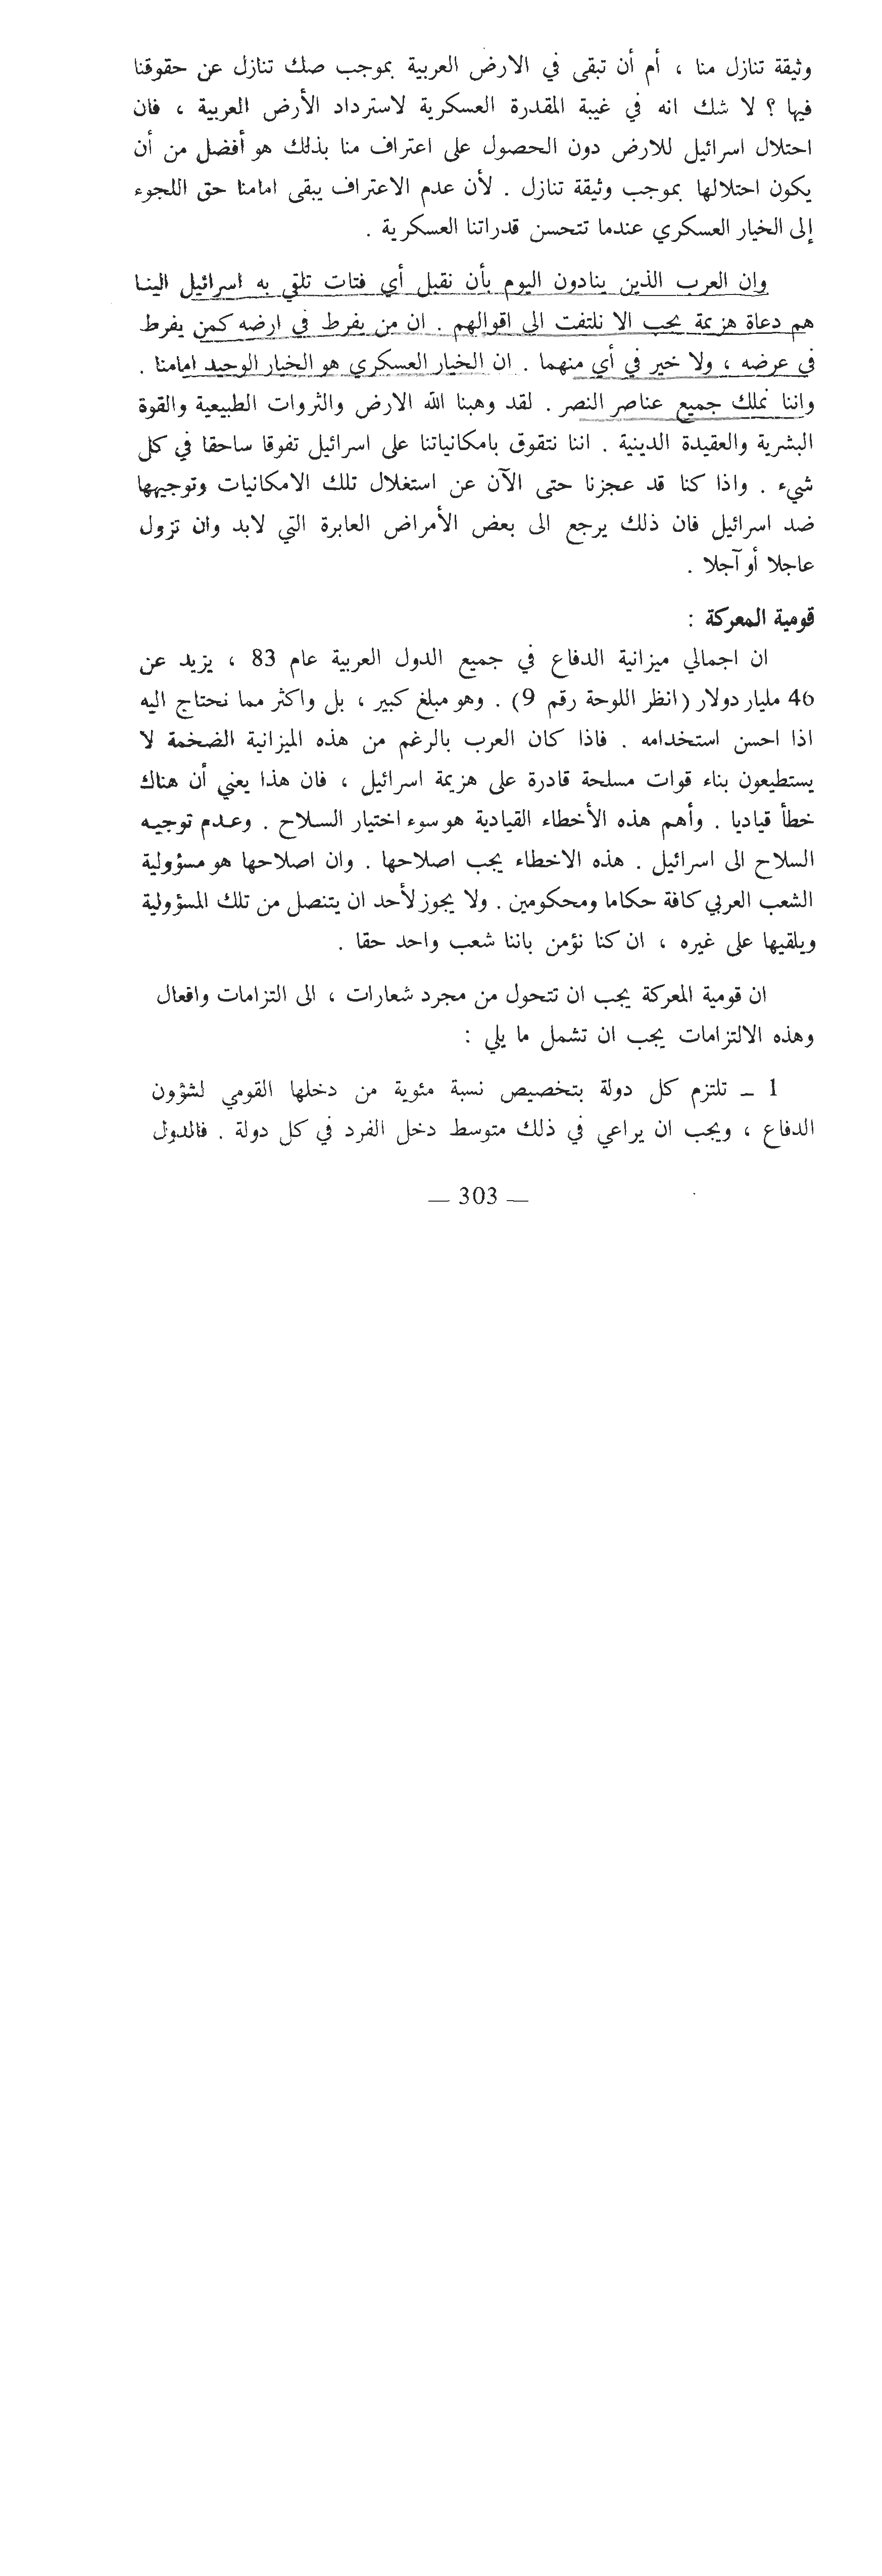 وثيقة تنازل منا ، أم أن تبقى في الارض العربية بموجب صك تنازل عن حقوقنا
فيها ؟ لا شك انه في غيبة المقدرة العسكرية لاسترداد الأرض العربية ، فان
احتلال اسرائيل للارض دون الحصول على اعتراف منا بذلك هو أفضل من أن
يكون احتلالها بموجب وثيقة تنازل . لأن عدم الاعتراف يبقى امامنا حق اللجوء
إلى الخيار العسكري عندما تتحسن قدراتنا العسكرية .
وان العرب الذين ينادون اليوم بأن نقبل أي فتات تلقي به اسرائيل الينا
هم دعاة هزيمة يجب الا نلتفت الى اقوالهم . ان من يفرط في ارضه كمن يفرط
في عرضه ، ولا خير في أي منهما . ان الخيار العسكري هو الخيار الوحيد امامنا .
واننا نملك جميع عناصر النصر . لقد وهبنا الله الارض والثروات الطبيعية والقوة
البشرية والعقيدة الدينية . اننا نتقوق بامكانياتنا على اسرائيل تفوقا ساحقا في كل
شيء . واذا كنا قد عجزنا حتى الآن عن استغلال تلك الامكانيات وتوجيهها
ضد اسرائيل فان ذلك يرجع الى بعض الأمراض العابرة التي لابد وان تزول
عاجلا أو آجلا .
قومية المعركة :
ان اجمالي ميزانية الدفاع في جميع الدول العربية عام 83 ، يزيد عن
46 مليار دولار (انظر اللوحة رقم 9) . وهو مبلغ كبير ، بل واكثر مما نحتاج اليه
اذا احسن استخدامه . فاذا كان العرب بالرغم من هذه الميزانية الضخمة لا
يستطيعون بناء قوات مسلحة قادرة على هزيمة اسرائيل ، فان هذا يعني أن هناك
خطأ قياديا . وأهم هذه الأخطاء القيادية هو سوء اختيار السلاح . وعدم توجيه
السلاح الى اسرائيل . هذه الاخطاء يجب اصلاحها . وان اصلاحها هو مسؤولية
الشعب العربي كافة حكاما ومحكومين . ولا يجوز لأحد ان يتنصل من تلك المسؤولية
ويلقيها على غيره ، ان كنا نؤمن باننا شعب واحد حقا .
ان قومية المعركة يجب ان تتحول من مجرد شعارات ، الى التزامات وافعال
وهذه الالتزامات يجب ان تشمل ما يلي :
1 ــ تلتزم كل دولة بتخصيص نسبة مئوية من دخلها القومي لشؤون
الدفاع ، ويجب ان يراعي في ذلك متوسط دخل الفرد في كل دولة . فالدول
— 303 —